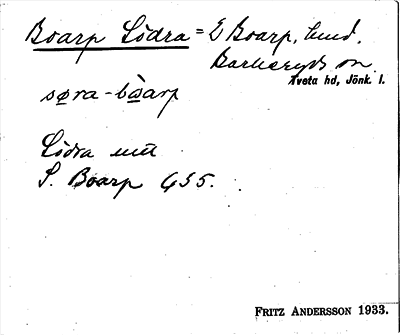 Boarp Södra = E Boarp, hmd.
Barkeryds sn.
Tveta hd, Jönk. l.
søra-bòarp
Södra uttr
S. Boarp G35.
FRITZ ANDERSSON 1933.